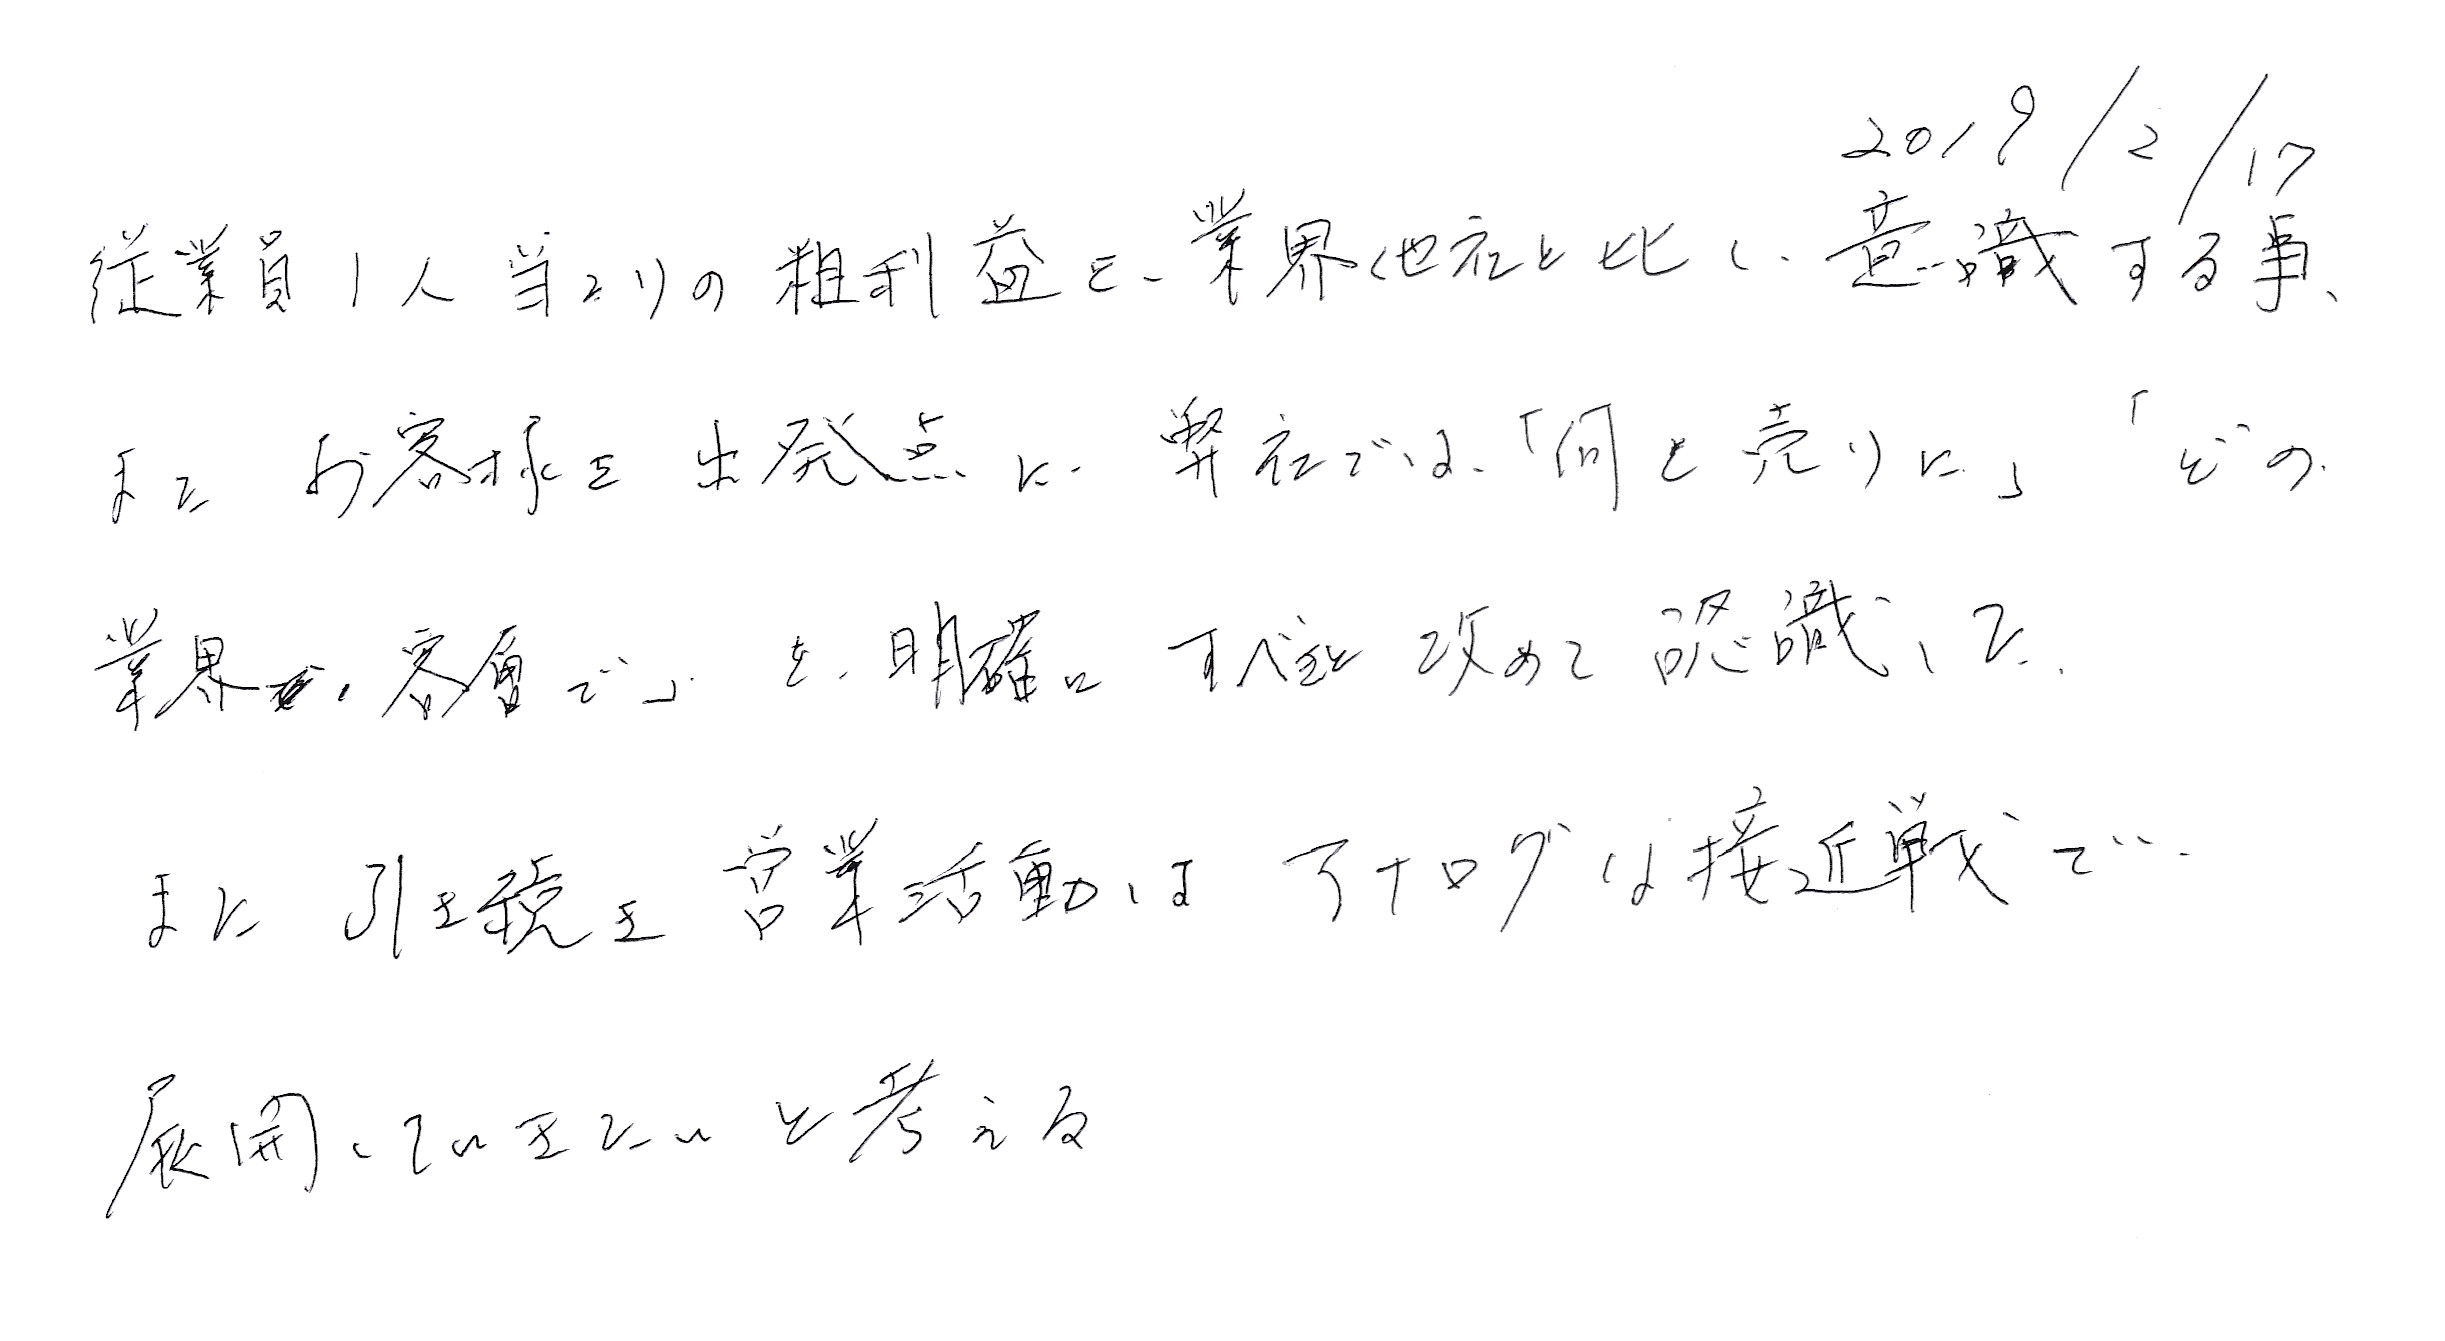 2019/2/17
従業員1人当たりの粗利益を、業界他社と比し、意識する事、
また お客様を出発点に、弊社では、「何を売りに」「どの
業界、客層で」を、明確にすべきと改めて認識した。
また 引き続き 営業活動は アナログな接近戦で
展開していきたいと考える